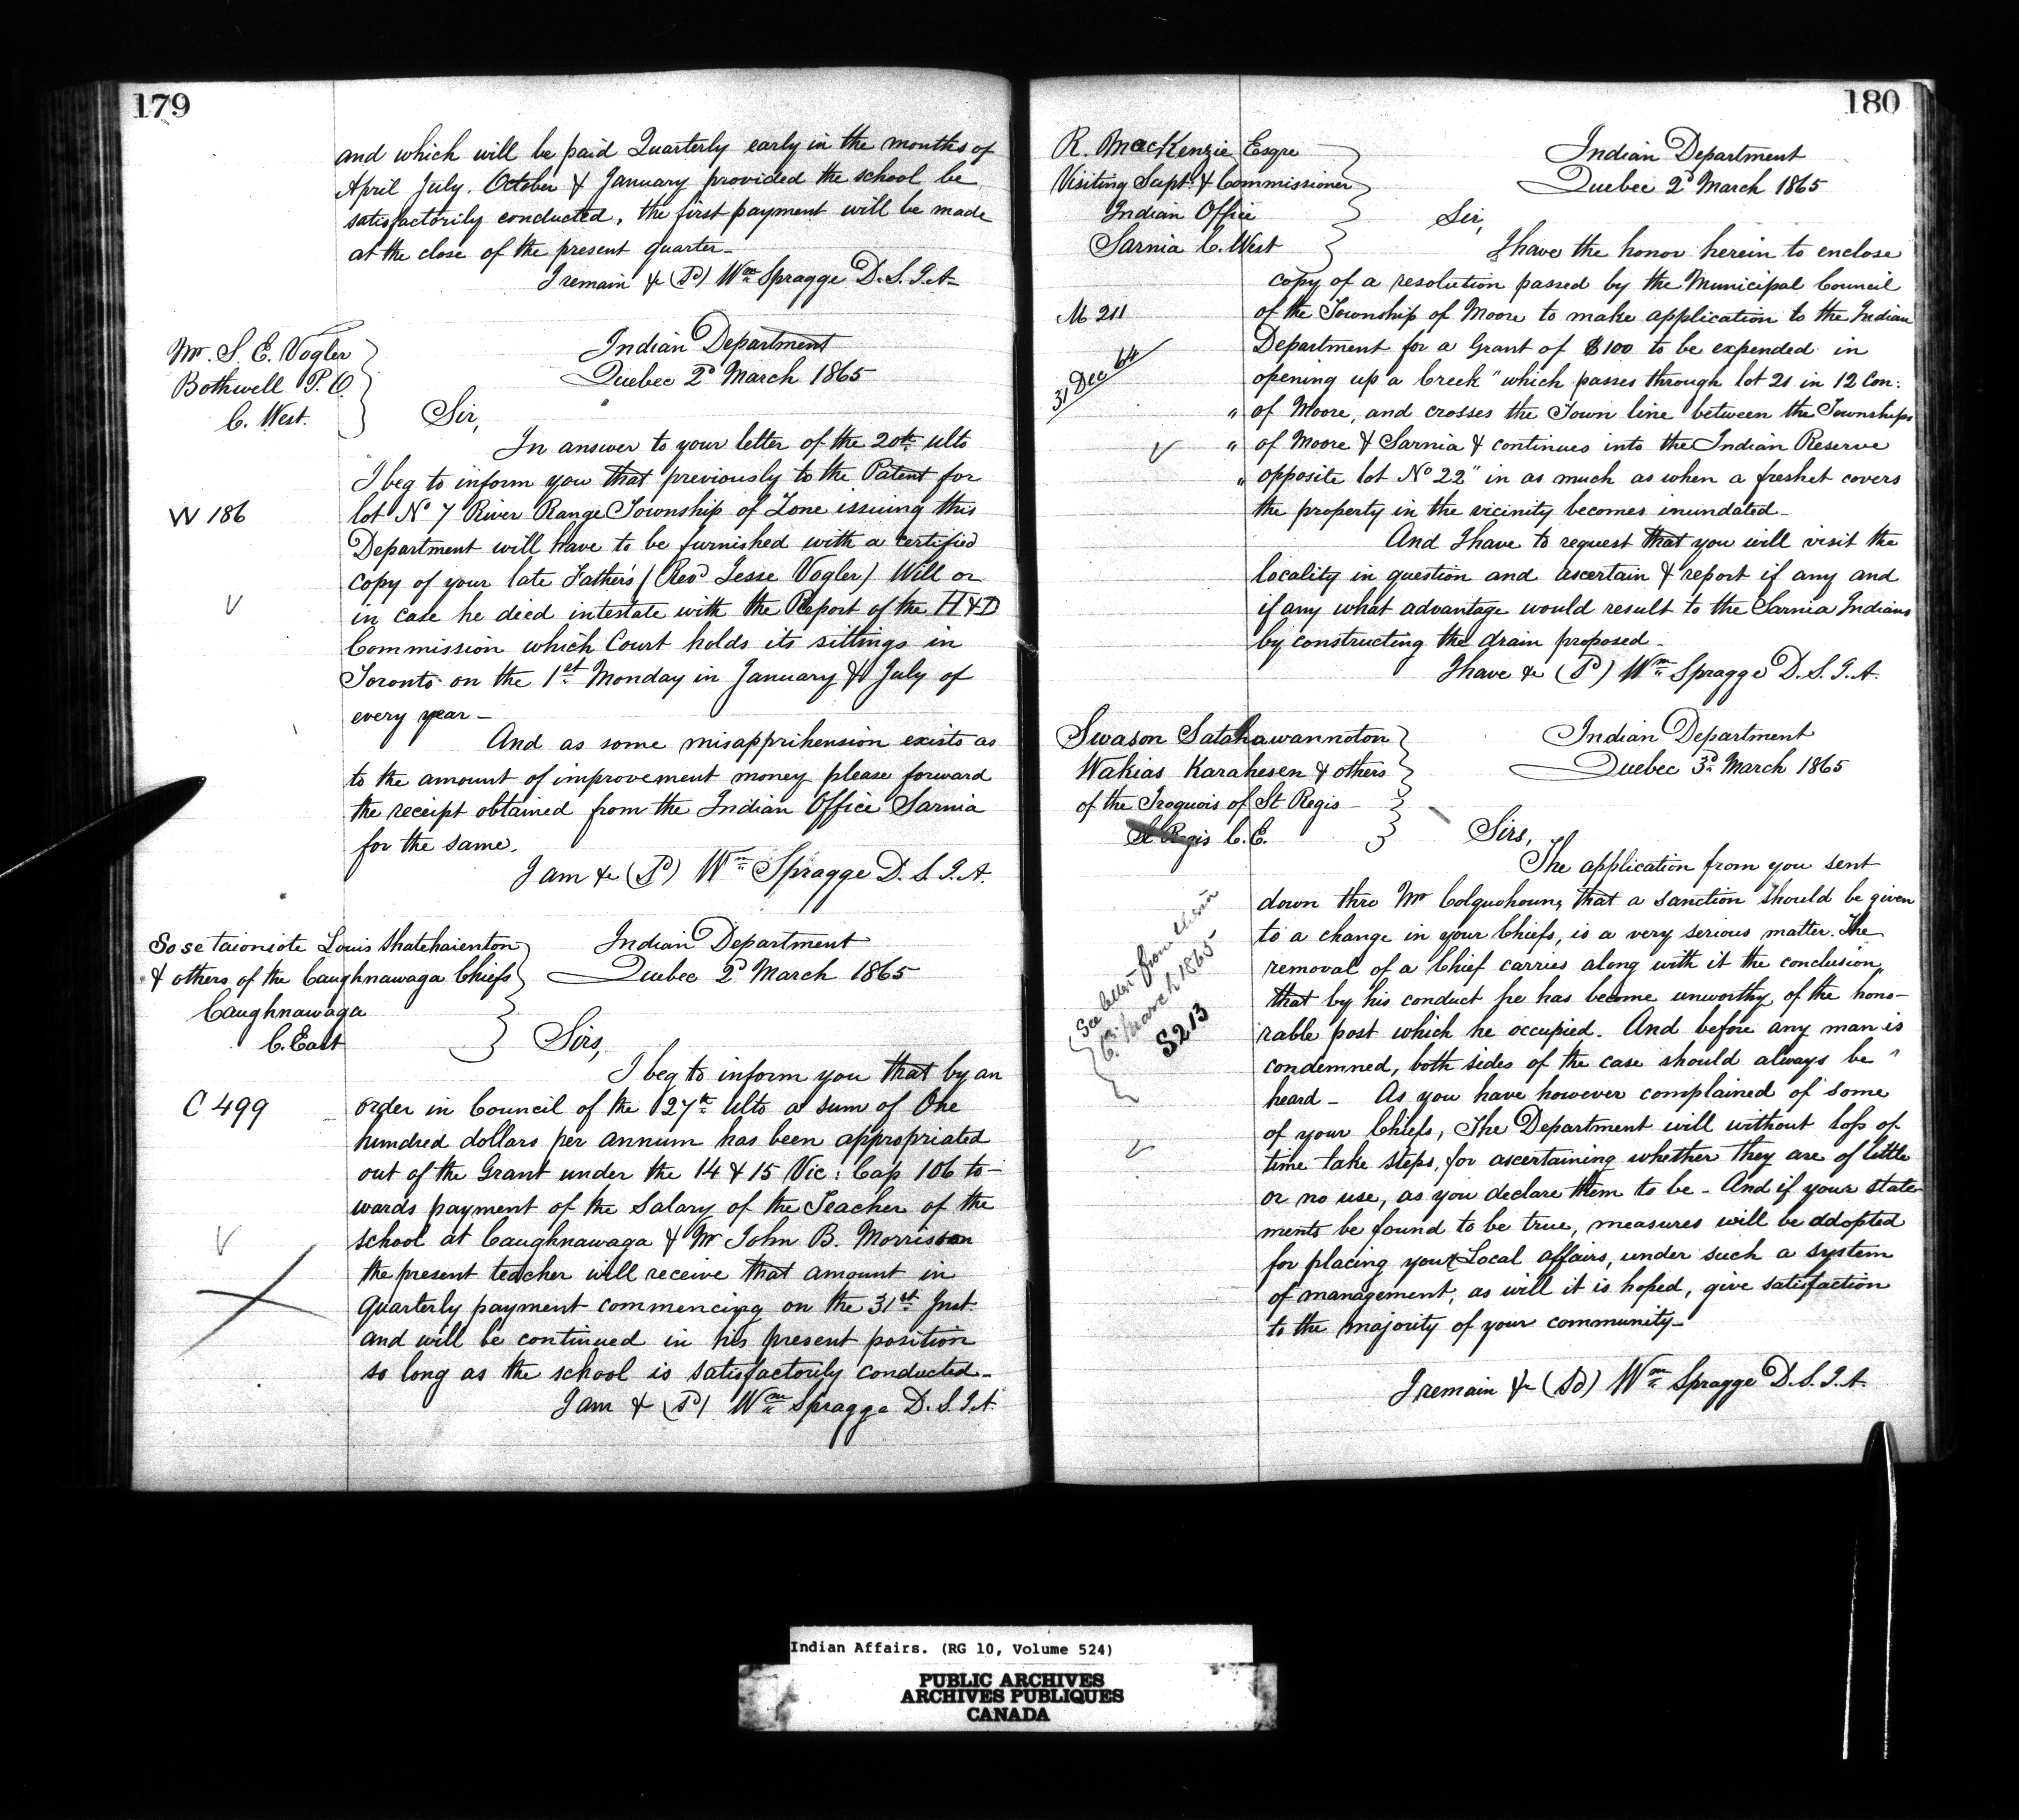 179
and which will be paid Quarterly early in the months of
April July. October & January provided the school be
satisfactorily conducted, the first payment will be made
at the close of the present quarter_
I remain &c (Sd) Wm Spragge D. S. I. A_
Mr. S. E. Vogler
Bothwell P. O.
C. West.
Indian Department
Quebec 2d March 1865
Sir,
In answer to your letter of the 20th ulto
I beg to inform you that previously to the Patent for
W 186
lot No 7 River Range Township of Zone issuing this
Department will have to be furnished with a certified
copy of your late Father's (Revd Jesse Vogler) Will or
in case he died intestate with the Report of the H & D
Commission which Court holds its sittings in
Toronto on the 1st Monday in January & July of
every year _
And as some misapprihension exists as
to the amount of improvement money please forward
the receipt obtained from the Indian Office Sarnia
for the same.
I am &c (Sd) Wm Spragge D. S. I. A.
Sose taionsote Louis Shatehaienton
& others of the Caughnawaga Chiefs
Caughnawaga
C. East
Indian Department
Quebec 2d March 1865
Sirs,
I beg to inform you that by an
C 499
order in Council of the 27th ulto a sum of One
hundred dollars per annum has been appropriated
out of the Grant under the 14 & 15 Vic: Cap 106 to-
wards payment of the Salary of the Teacher of the
school at Caughnawaga & Mr John B. Morrison
the present teacher will receive that amount in
quarterly payment commencing on the 31st Inst
and will be continued in his present position
so long as the school is satisfactorily conducted_
I am & (Sd) Wm Spragge D. S. I. A.
180
R. MacKenzie Esqre
Visiting Supt. & Commissioner
Indian Office
Sarnia C. West
Indian Department
Quebec 2d March 1865
Sir,
I have the honor herein to enclose
copy of a resolution passed by the Municipal Council
M 211
of the Township of Moore to make application to the Indian
31 Dec 64
Department for a Grant of $100 to be expended in
opening up a Creek "which passes through lot 21 in 12 Con:
" of Moore, and crosses the Town line between the Townships
" of Moore & Sarnia & continues into the Indian Reserve
" opposite lot No 22" in as much as when a freshet covers
the property in the vicinity becomes inundated_
And I have to request that you will visit the
locality in question and ascertain & report if any and
if any what advantage would result to the Sarnia Indians
by constructing the drain proposed_
I have &c (Sd) Wm Spragge D. S. I. A.
Swason Satahawannoton
Wakias Karahesen & others
of the Iroquois of St Regis _
St Regis C. E.
Indian Department
Quebec 3d March 1865
Sirs,
The application from you sent
down thro Mr Colquohoun, that a sanction should be given
to a change in your Chiefs, is a very serious matter. The
removal of a Chief carries along with it the conclusion,
that by his conduct he has become unworthy of the hono-
rable post which he occupied. And before any man is
condemned, both sides of the case should always be
heard _ As you have however complained of some
of your Chiefs, The Department will without loss of
time take steps, for ascertaining whether they are of little
or no use, as you declare them to be _ And if your state-
ments be found to be true, measures will be addopted
for placing your Local affairs, under such a system
of management, as will it is hoped, give satisfaction
to the majority of your community_
I remain &c (Sd) Wm Spragge D. S. I. A.
See letter from
6th March 1865
S213
Indian Affairs. (RG 10, Volume 524)
PUBLIC ARCHIVES
ARCHIVES PUBLIQUES
CANADA